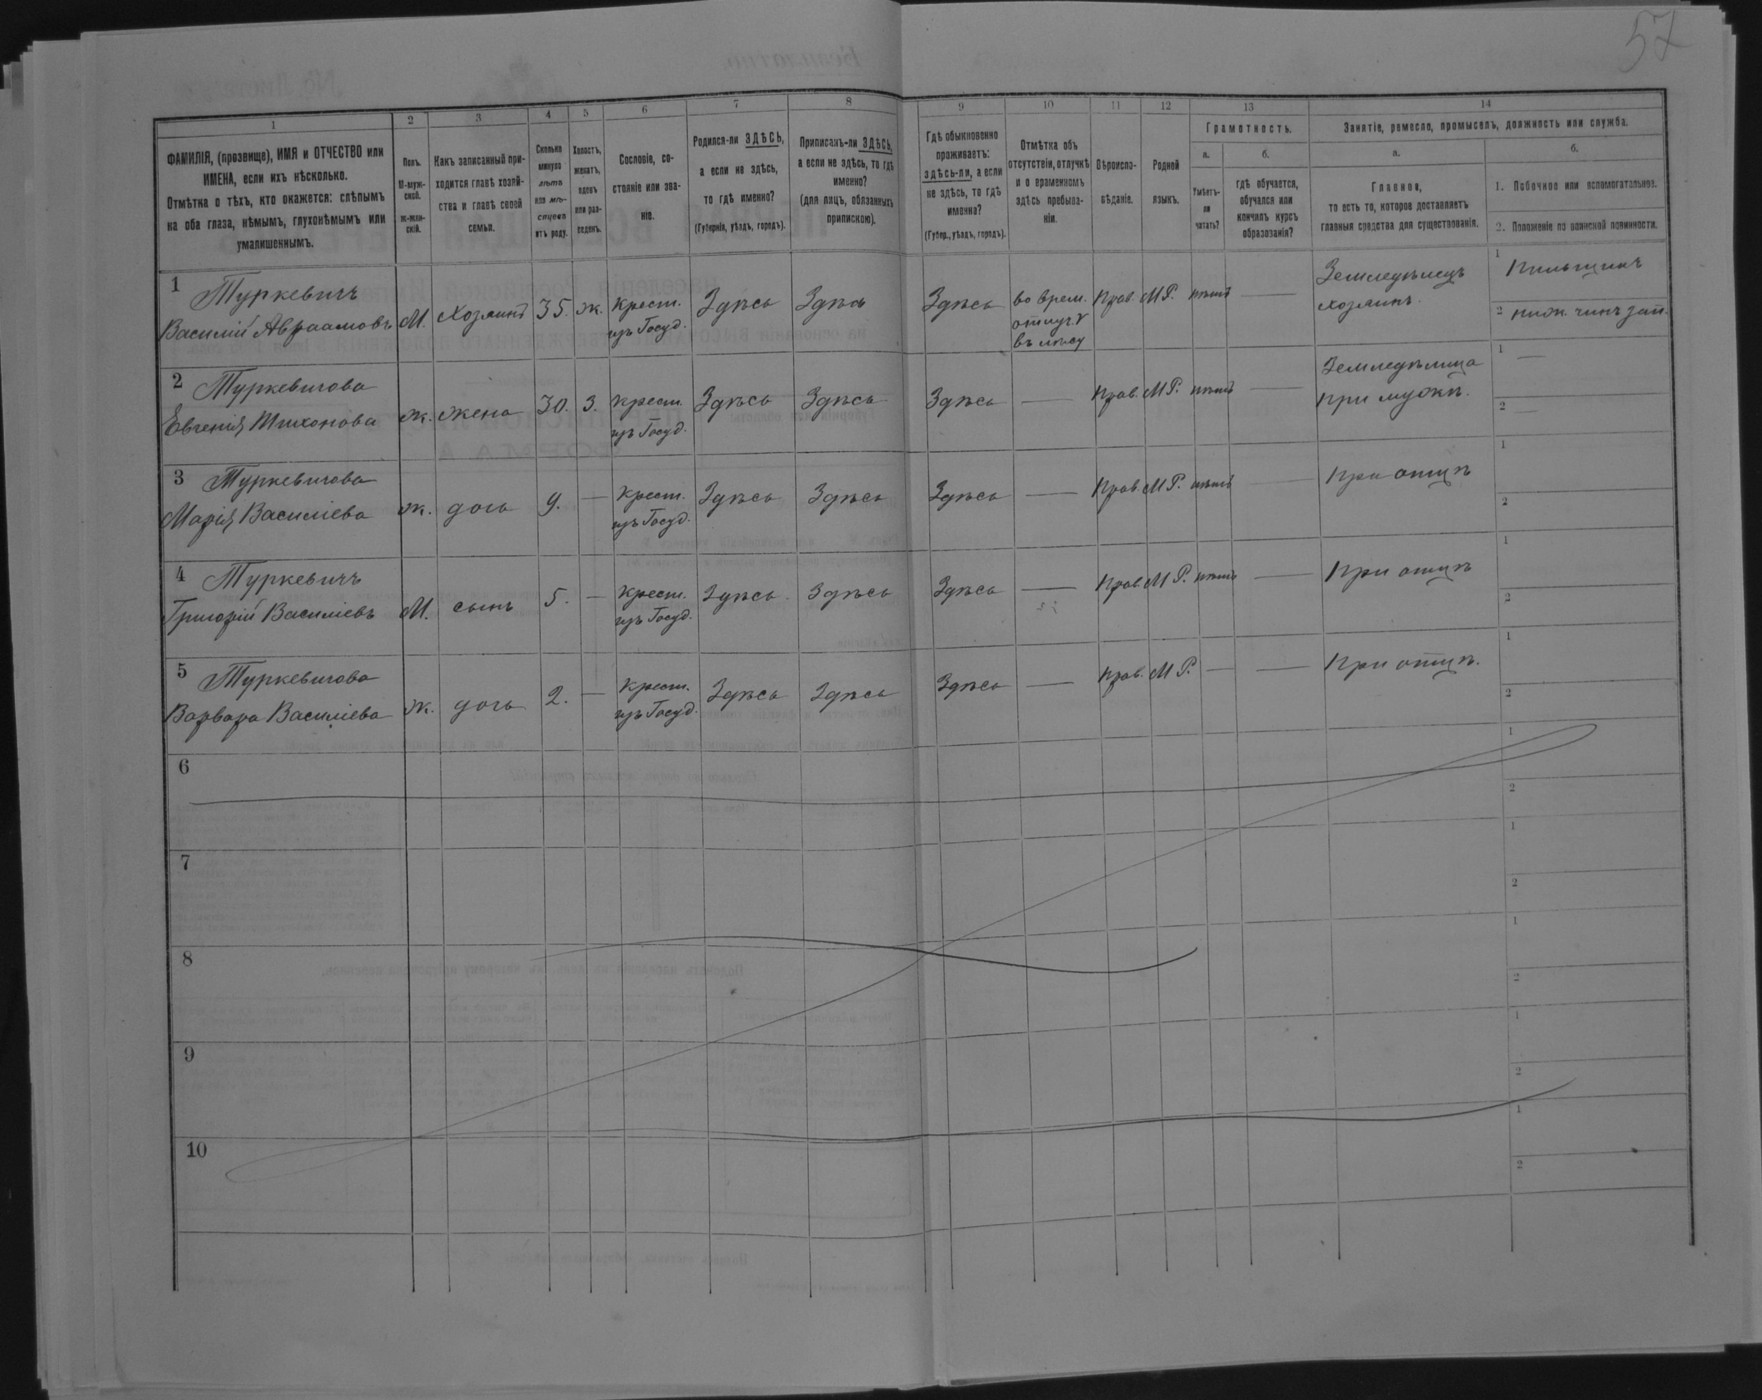 57
1 2 3 4 5 6 7 8 9 10 11 12 13 14
ФАМИЛІЯ, (прозвище), ИМЯ и ОТЧЕСТВО или
ИМЕНА, если ихъ нѣсколько.
Отмѣтка о тѣхъ, кто окажется: слѣпымъ
на оба глаза, нѣмымъ, глухонѣмымъ или
умалишеннымъ.
Полъ.
М-муж-
ской.
Ж-жен-
скій.
Какъ записанный при-
ходится главѣ хозяй-
ства и главѣ своей
семьи.
Сколько
минуло
лѣтъ
или мѣ-
сяцевъ
отъ роду.
Холостъ,
женатъ,
вдовъ
или раз-
веденъ.
Сословіе, со-
стояніе или зва-
ніе.
Родился-ли ЗДѢСЬ,
а если не здѣсь,
то гдѣ именно?
(Губернія, уѣздъ, городъ).
Приписанъ-ли ЗДѢСЬ,
а если не здѣсь, то гдѣ
именно?
(для лицъ, обязанныхъ
припиской).
Гдѣ обыкновенно
проживаетъ:
здѣсь-ли, а если
не здѣсь, то гдѣ
именно?
(Губер., уѣздъ, городъ).
Отмѣтка объ
отсутствіи, отлучкѣ
и о временномъ
здѣсь пребыва-
ніи.
Вѣроиспо-
вѣданіе.
Родной
языкъ.
Грамотность.
а.
Умѣетъ-
ли
читать?
б.
гдѣ обучается,
обучался или
кончилъ курсъ
образованія?
Занятіе, ремесло, промыселъ, должность или служба.
а.
Главное,
то есть то, которое доставляетъ
главныя средства для существованія.
б.
1. Побочное или вспомогательное.
2. Положеніе по воинской повинности.
1 Туркевичъ
Василій Авраамовъ М. Хозяинъ 35. ж. Крест. изъ Госуд. Здѣсь Здѣсь Здѣсь во врем. отлуч. въ лѣсу Прав. М.Р. нѣтъ — Земледѣлецъ хозяинъ. 1 Пильщикъ
2 ниж. чинъ зап.
2 Туркевичова
Евгенія Тихонова ж. жена 30. З. Крест. изъ Госуд. Здѣсь Здѣсь Здѣсь — Прав. М.Р. нѣтъ — Земледѣлица при мужѣ. 1 —
2 —
3 Туркевичова
Марія Василіева ж. дочь 9. — Крест. изъ Госуд. Здѣсь Здѣсь Здѣсь — Прав. М.Р. нѣтъ — При отцѣ 1
2
4 Туркевичъ
Григорій Василіевъ М. сынъ 5. — Крест. изъ Госуд. Здѣсь Здѣсь Здѣсь — Прав. М.Р. нѣтъ — При отцѣ 1
2
5 Туркевичова
Варвара Василіева ж. дочь 2. — Крест. изъ Госуд. Здѣсь Здѣсь Здѣсь — Прав. М.Р. — — При отцѣ. 1
2
6 1
2
7 1
2
8 1
2
9 1
2
10 1
2